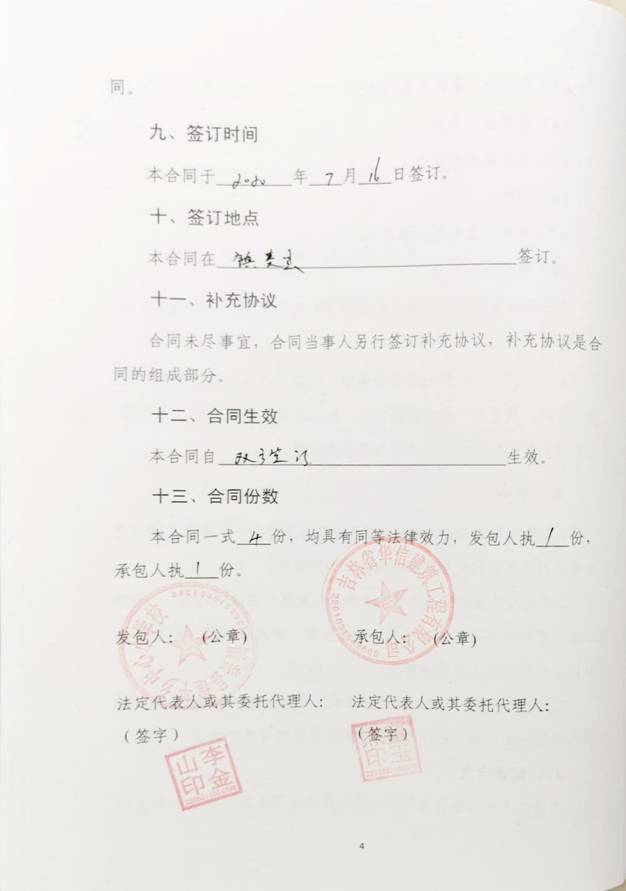 同。
九、签订时间
本合同于 2020 年 7 月 16 日签订。
十、签订地点
本合同在 签订。
十一、补充协议
合同未尽事宜，合同当事人另行签订补充协议，补充协议是合
同的组成部分。
十二、合同生效
本合同自 双方签订 生效。
十三、合同份数
本合同一式 4 份，均具有同等法律效力，发包人执 1 份，
承包人执 1 份。
吉林省华信建筑工程有限公司
发包人： (公章)
承包人： (公章)
法定代表人或其委托代理人：
法定代表人或其委托代理人：
（签字）
（签字）
李金山印
4